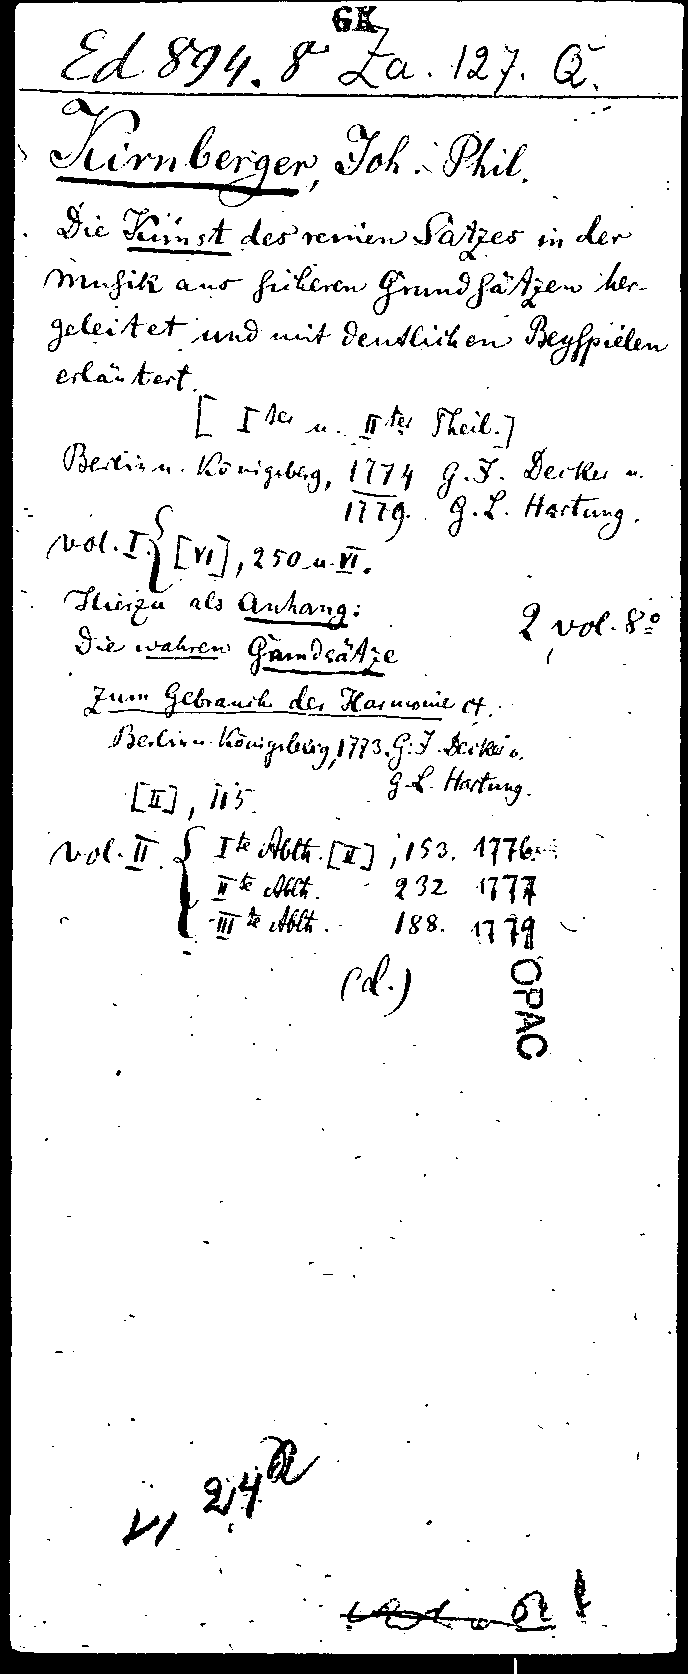 GK
Ed 894. 8° Za. 127. Q.
Kirnberger, Joh. Phil.
Die Kunst des reinen Satzes in der
Musik aus sicheren Grundsätzen her-
geleitet und mit deutlichen Beyspielen
erläutert.
[Iter u. IIter Theil.]
Berlin u. Königsberg, 1774 G. J. Decker u.
1779. G. L. Hartung.
vol. I. { [VI], 250 u. VI.
Hierzu als Anhang:
2 vol. 8°
Die wahren Grundsätze
zum Gebrauch der Harmonie ct.
Berlin u. Königsberg, 1773. G. J. Decker u.
G. L. Hartung.
[II], 115.
vol. II. { Ite Abth. [II], 153. 1776.
IIte Abth. 232 1777
IIIte Abth. 188. 1779
(d.)
OPAC
24